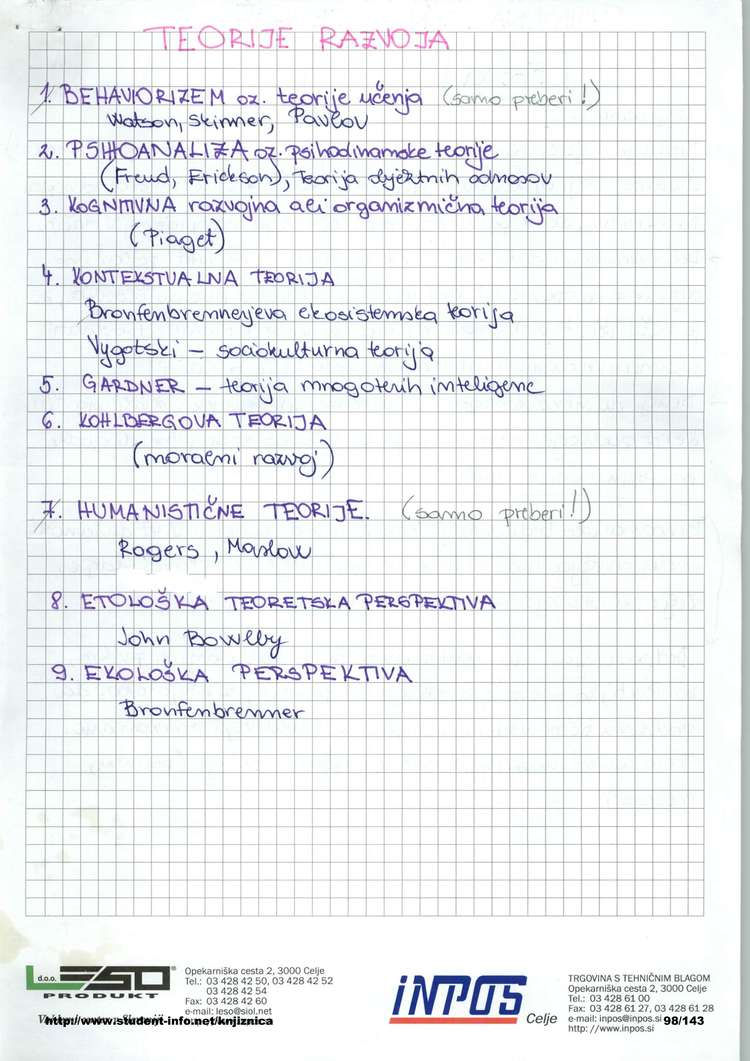 TEORIJE RAZVOJA
1. BEHAVIORIZEM oz. teorije učenja (samo preberi!)
Watson, Skinner, Pavlov
2. PSIHOANALIZA oz. psihodinamske teorije
(Freud, Erickson), Teorija objektnih odnosov
3. KOGNITIVNA razvojna ali organizmična teorija
(Piaget)
4. KONTEKSTUALNA TEORIJA
Bronfenbrennerjeva ekosistemska teorija
Vygotski – sociokulturna teorija
5. GARDNER – teorija mnogoterih inteligenc
6. KOHLBERGOVA TEORIJA
(moralni razvoj)
7. HUMANISTIČNE TEORIJE. (samo preberi!)
Rogers, Maslow
8. ETOLOŠKA TEORETSKA PERSPEKTIVA
John Bowlby
9. EKOLOŠKA PERSPEKTIVA
Bronfenbrenner
d.o.o. LESO PRODUKT
Opekarniška cesta 2, 3000 Celje
Tel.: 03 428 42 50, 03 428 42 52
03 428 42 54
Fax: 03 428 42 60
e-mail: leso@siol.net
http://www.student-info.net/knjiznica
INPOS Celje
TRGOVINA S TEHNIČNIM BLAGOM
Opekarniška cesta 2, 3000 Celje
Tel.: 03 428 61 00
Fax: 03 428 61 27, 03 428 61 28
e-mail: inpos@inpos.si
http: //www.inpos.si
98/143